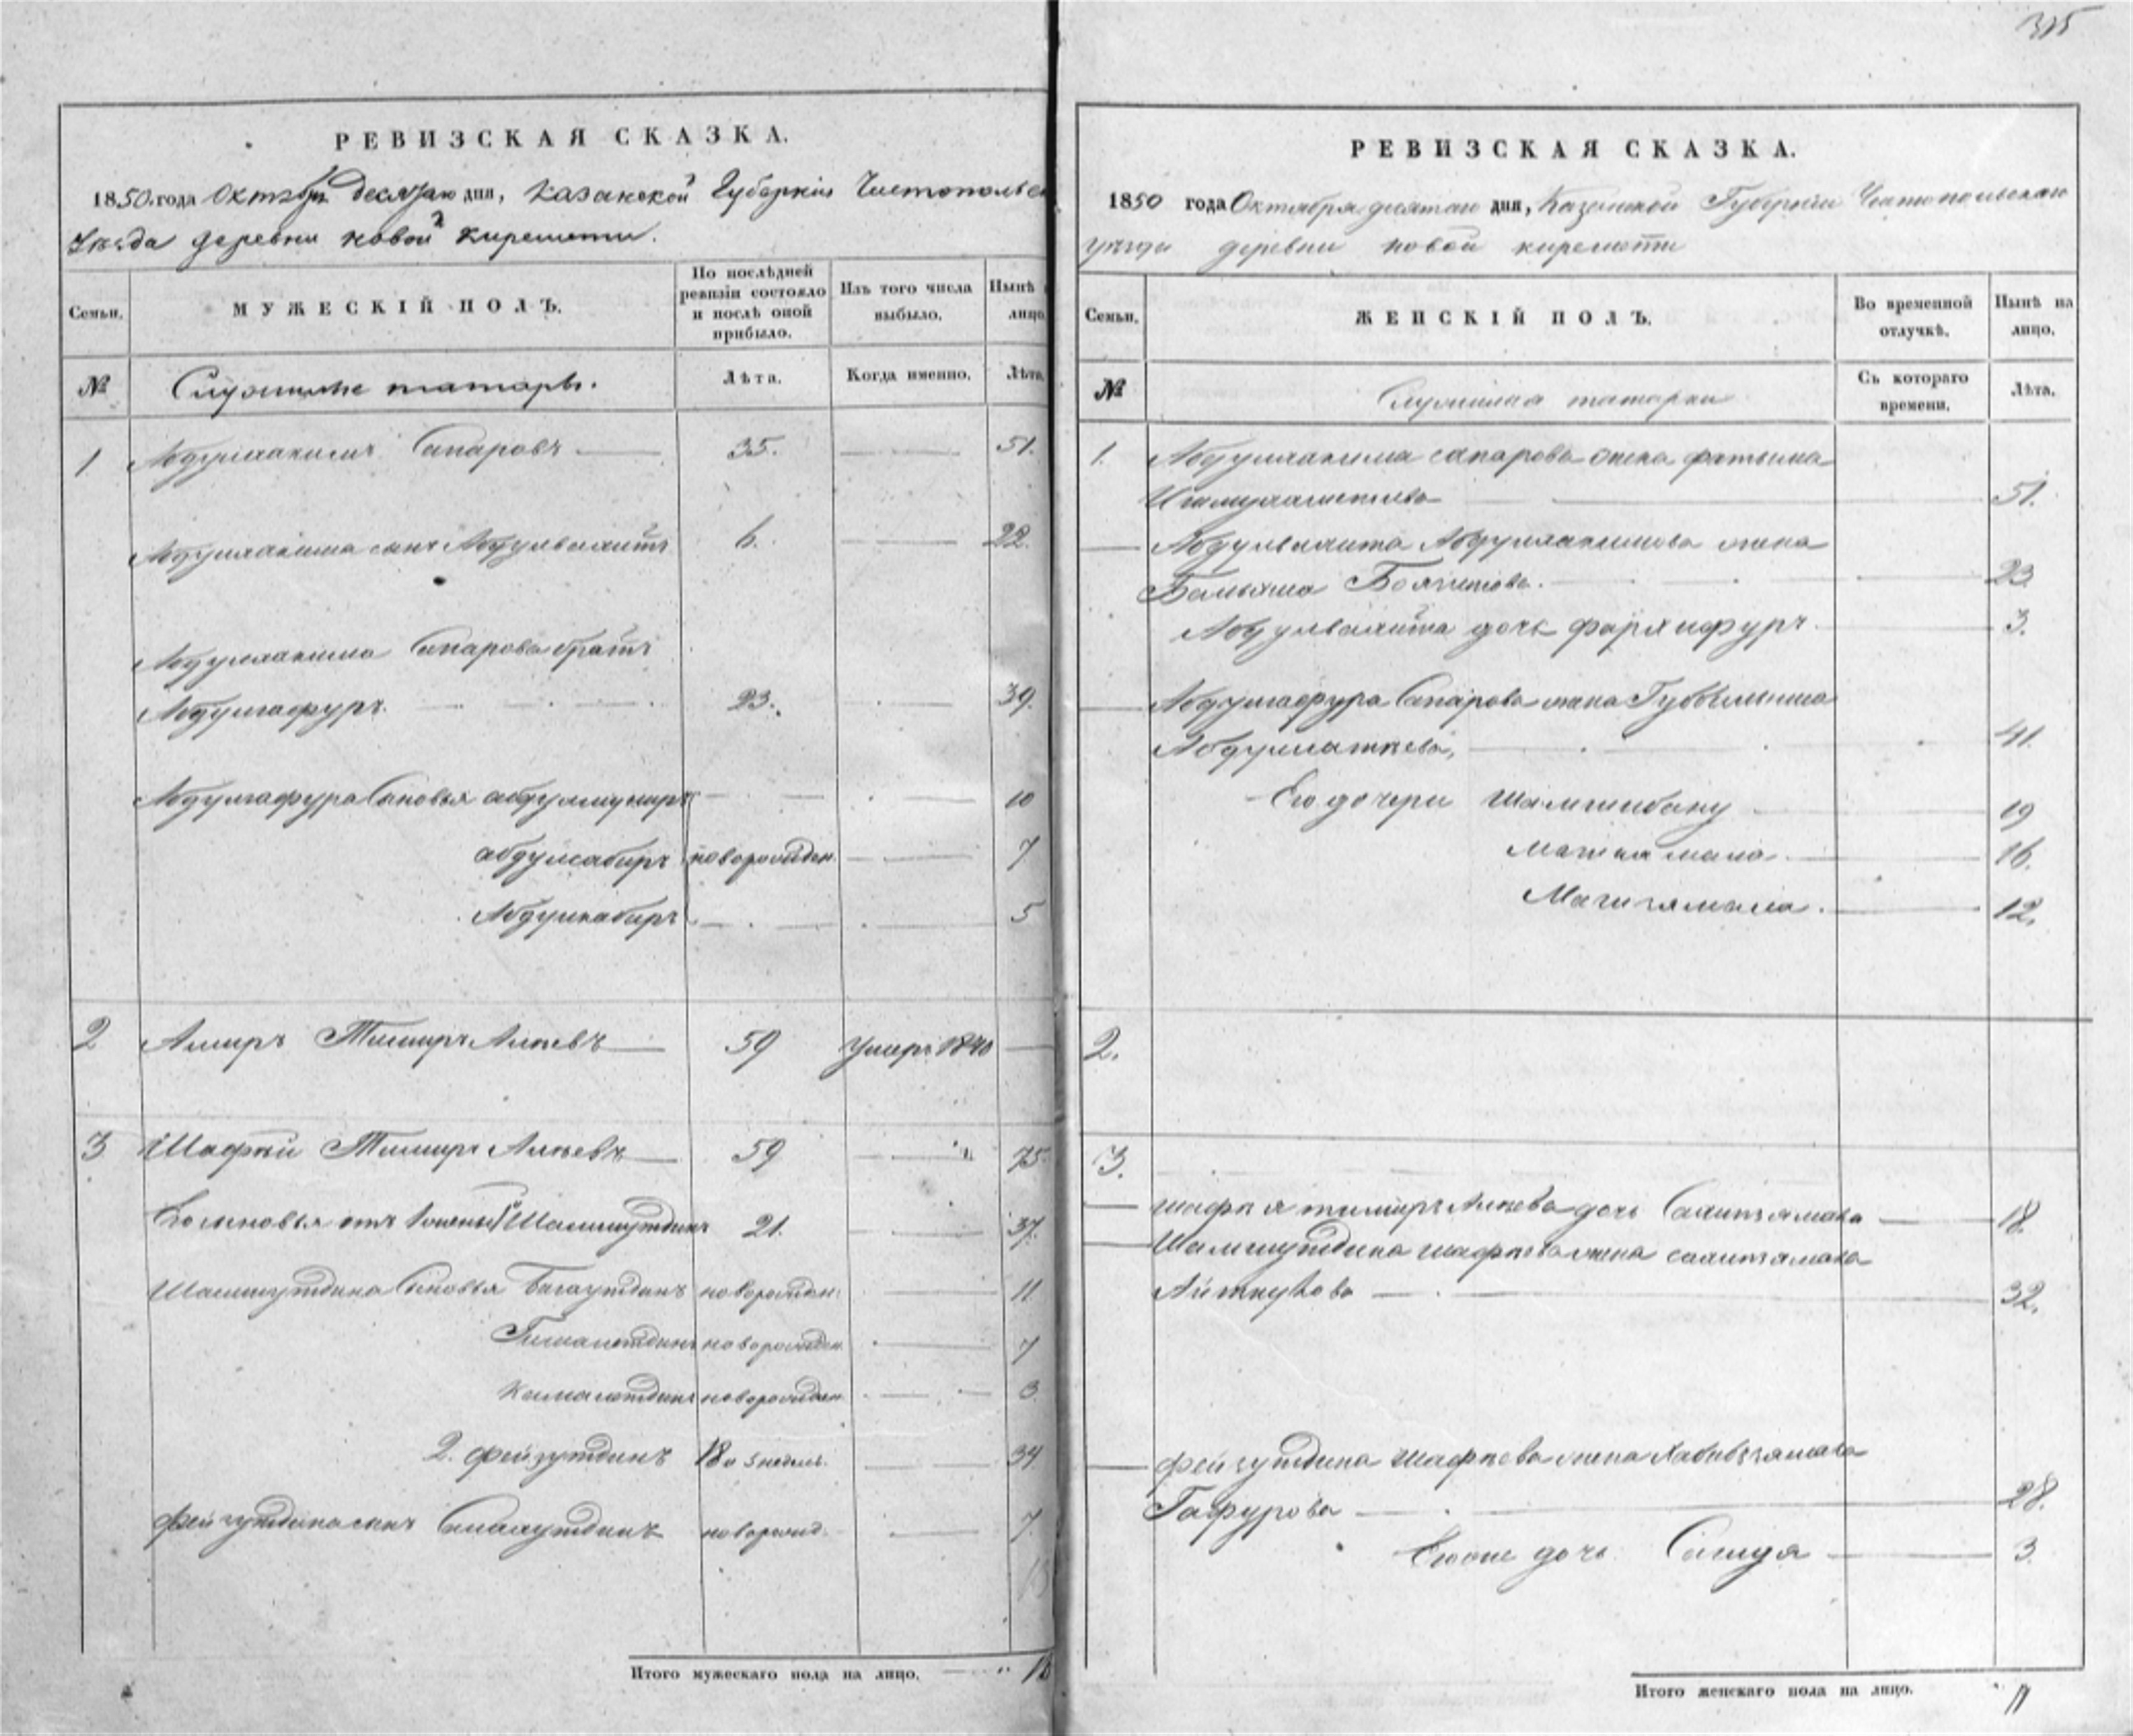 315
РЕВИЗСКАЯ СКАЗКА.
1850. года Октября десятаго дня, Казанской Губернiи Чистопольск
Уѣзда деревни новой киремети.
Семьи.
МУЖЕСКІЙ ПОЛЪ.
По послѣдней ревизіи состояло и послѣ оной прибыло.
Изъ того числа выбыло.
Нынѣ лицо
№
Служилые татары.
Лѣта.
Когда именно.
Лѣта.
1 Абдулхакимъ Сапаровъ 35. 51.
Абдулхакима сынъ Абдулвалитъ 6. 22.
Абдулхакима Сапарова братъ
Абдулгафуръ. 23. 39.
Абдулгафура Сыновья абдулмуниръ 10
абдулсабиръ новорожден. 7
Абдулкабиръ 5
2 Амиръ Тимиръ Алѣевъ 59 умеръ 1840
3 Шафѣй Тимиръ Алѣевъ 59 75
Его сыновья отъ жены Шамшутдинъ 21. 37.
Шамшутдина Сыновья Багаутдинъ новорожден. 11
Гималетдинъ новорожден 7
Камалетдинъ новорожден 3
2. фейзутдинъ 18 34
фейзутдина сынъ новорожд. 7
Итого мужескаго пола на лицо.
РЕВИЗСКАЯ СКАЗКА.
1850 года Октября десятаго дня, Казанской Губернiи Чистопольскаго
уѣзда деревни новой киремети
Семьи.
ЖЕНСКІЙ ПОЛЪ.
Во временной отлучкѣ.
Нынѣ на лицо.
№
Служилыя татарки
Съ котораго времени.
Лѣта.
1. Абдулхакима сапарова жена фатьима
51.
Абдулвалита Абдулхакимова жена
23
Абдулвалита дочь 3.
Абдулгафура Сапарова жена
41.
Его дочери Шамсибану 19
16.
12.
2.
3.
шафѣя тимиръ Алѣева дочь 18.
Шамшутдина шафѣева жена
Аиткулова 32.
фейзутдина шафѣева жена
Гафурова 28.
Его же дочь 3
Итого женскаго пола на лицо. 11